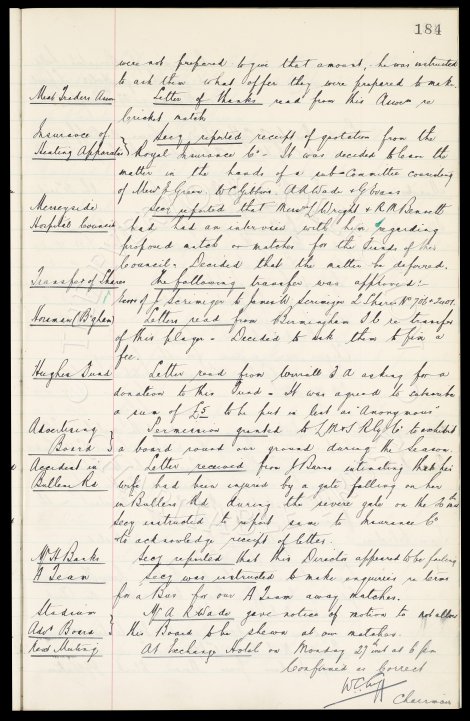 184
were not prepared to give that amount, he was instructed
to ask them what offer they were prepared to make.
Meat Traders Assocn Letter of thanks read from this Assocn re
Cricket match
Insurance of Secy reported receipt of quotation from the
Heating Apparatus Royal Insurance Co - It was decided to leave the
matter in the hands of a sub-Committee consisting
of Messrs Green, W.C. Gibbins, A.R. Wade & G. Evans
Merseyside Secy reported that Messrs Wright & R.M. Bennett
Hospital Council had had an interview with him regarding
proposed match or matches for the funds of the
Council - Decided that the matter be deferred.
Transfer of Shares The following transfer was approved:-
J Scrimeger to James W. Scrimeger 2 Shares No
Horsman (B'gham) Letters read from Birmingham F.C. re transfer
of this player - Decided to ask them to fix a
fee.
Hughes Fund Letter read from F.A. asking for a
donation to this Fund - It was agreed to subscribe
a sum of £5 to be put in list as "Anonymous"
Advertising Permission granted to to exhibit
Board a board round our ground during the season.
Accident in Letter received from J Burns intimating that his
Bullens Rd wife had been injured by a gate falling on her
in Bullens Rd during the severe gale on the
Secy instructed to report same to Insurance Co
& to acknowledge receipt of letter.
Mr H Banks Secy reported that this Director appeared to be failing
A Team Secy was instructed to make enquiries re terms
for a Bus for our A Team away matches.
Stadium Mr A.R. Wade gave notice of motion to not allow
Advt Board this Board to be shewn at our matches.
Next Meeting At Exchange Hotel on Monday 27th inst at 6 pm
Confirmed as Correct
Chairman